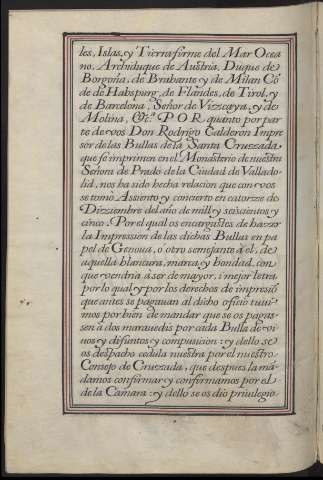 les, Islas, y Tierra firme del Mar Ocea
no. Archiduque de Austria, Duque de
Borgoña, de Brabante y de Milan Cõ
de de Habspurg, de Flandes, de Tirol, y
de Barcelona, Señor de Vizcaya, y de
Molina, &c.ª POR quanto por par
te de vos Don Rodrigo Calderon Impre
sor de las Bullas de la Santa Cruzada
que se imprimen en el Monasterio de nuestra
Señora de Prado de la Ciudad de Vallado-
lid, nos ha sido hecha relacion que con vos
se tomò Assiento y concierto en catorze de
Diziembre del año de mill y seiscientos y
cinco: Por el qual os encargastes de hazer
la Impression de las dichas Bullas en pa
pel de Genoua, o otro semejante à el, de
aquella blancura, marca, y bondad, con
que vendria à ser de mayor, i mejor letra
por lo qual y por los derechos de impresiõ
que antes se pagauan al dicho oficio tuui-
mos por bien de mandar que se os pagas-
sen à dos marauedis por cada Bulla de vi-
uos y difuntos y compusicion: y dello se
os despacho cedula nuestra por el nuestro
Consejo de Cruzada, que despues la mã-
damos confirmar y confirmamos por el
de la Càmara: y dello se os dio priuilegio